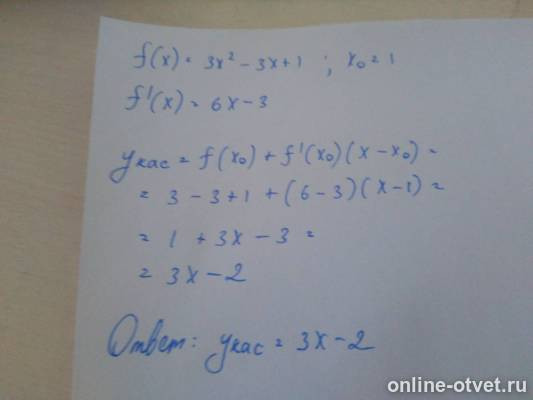 f(x) = 3x² - 3x + 1 ; x₀ = 1
f'(x) = 6x - 3
yкас = f(x₀) + f'(x₀)(x - x₀) =
= 3 - 3 + 1 + (6 - 3)(x - 1) =
= 1 + 3x - 3 =
= 3x - 2
Ответ: yкас = 3x - 2
online-otvet.ru